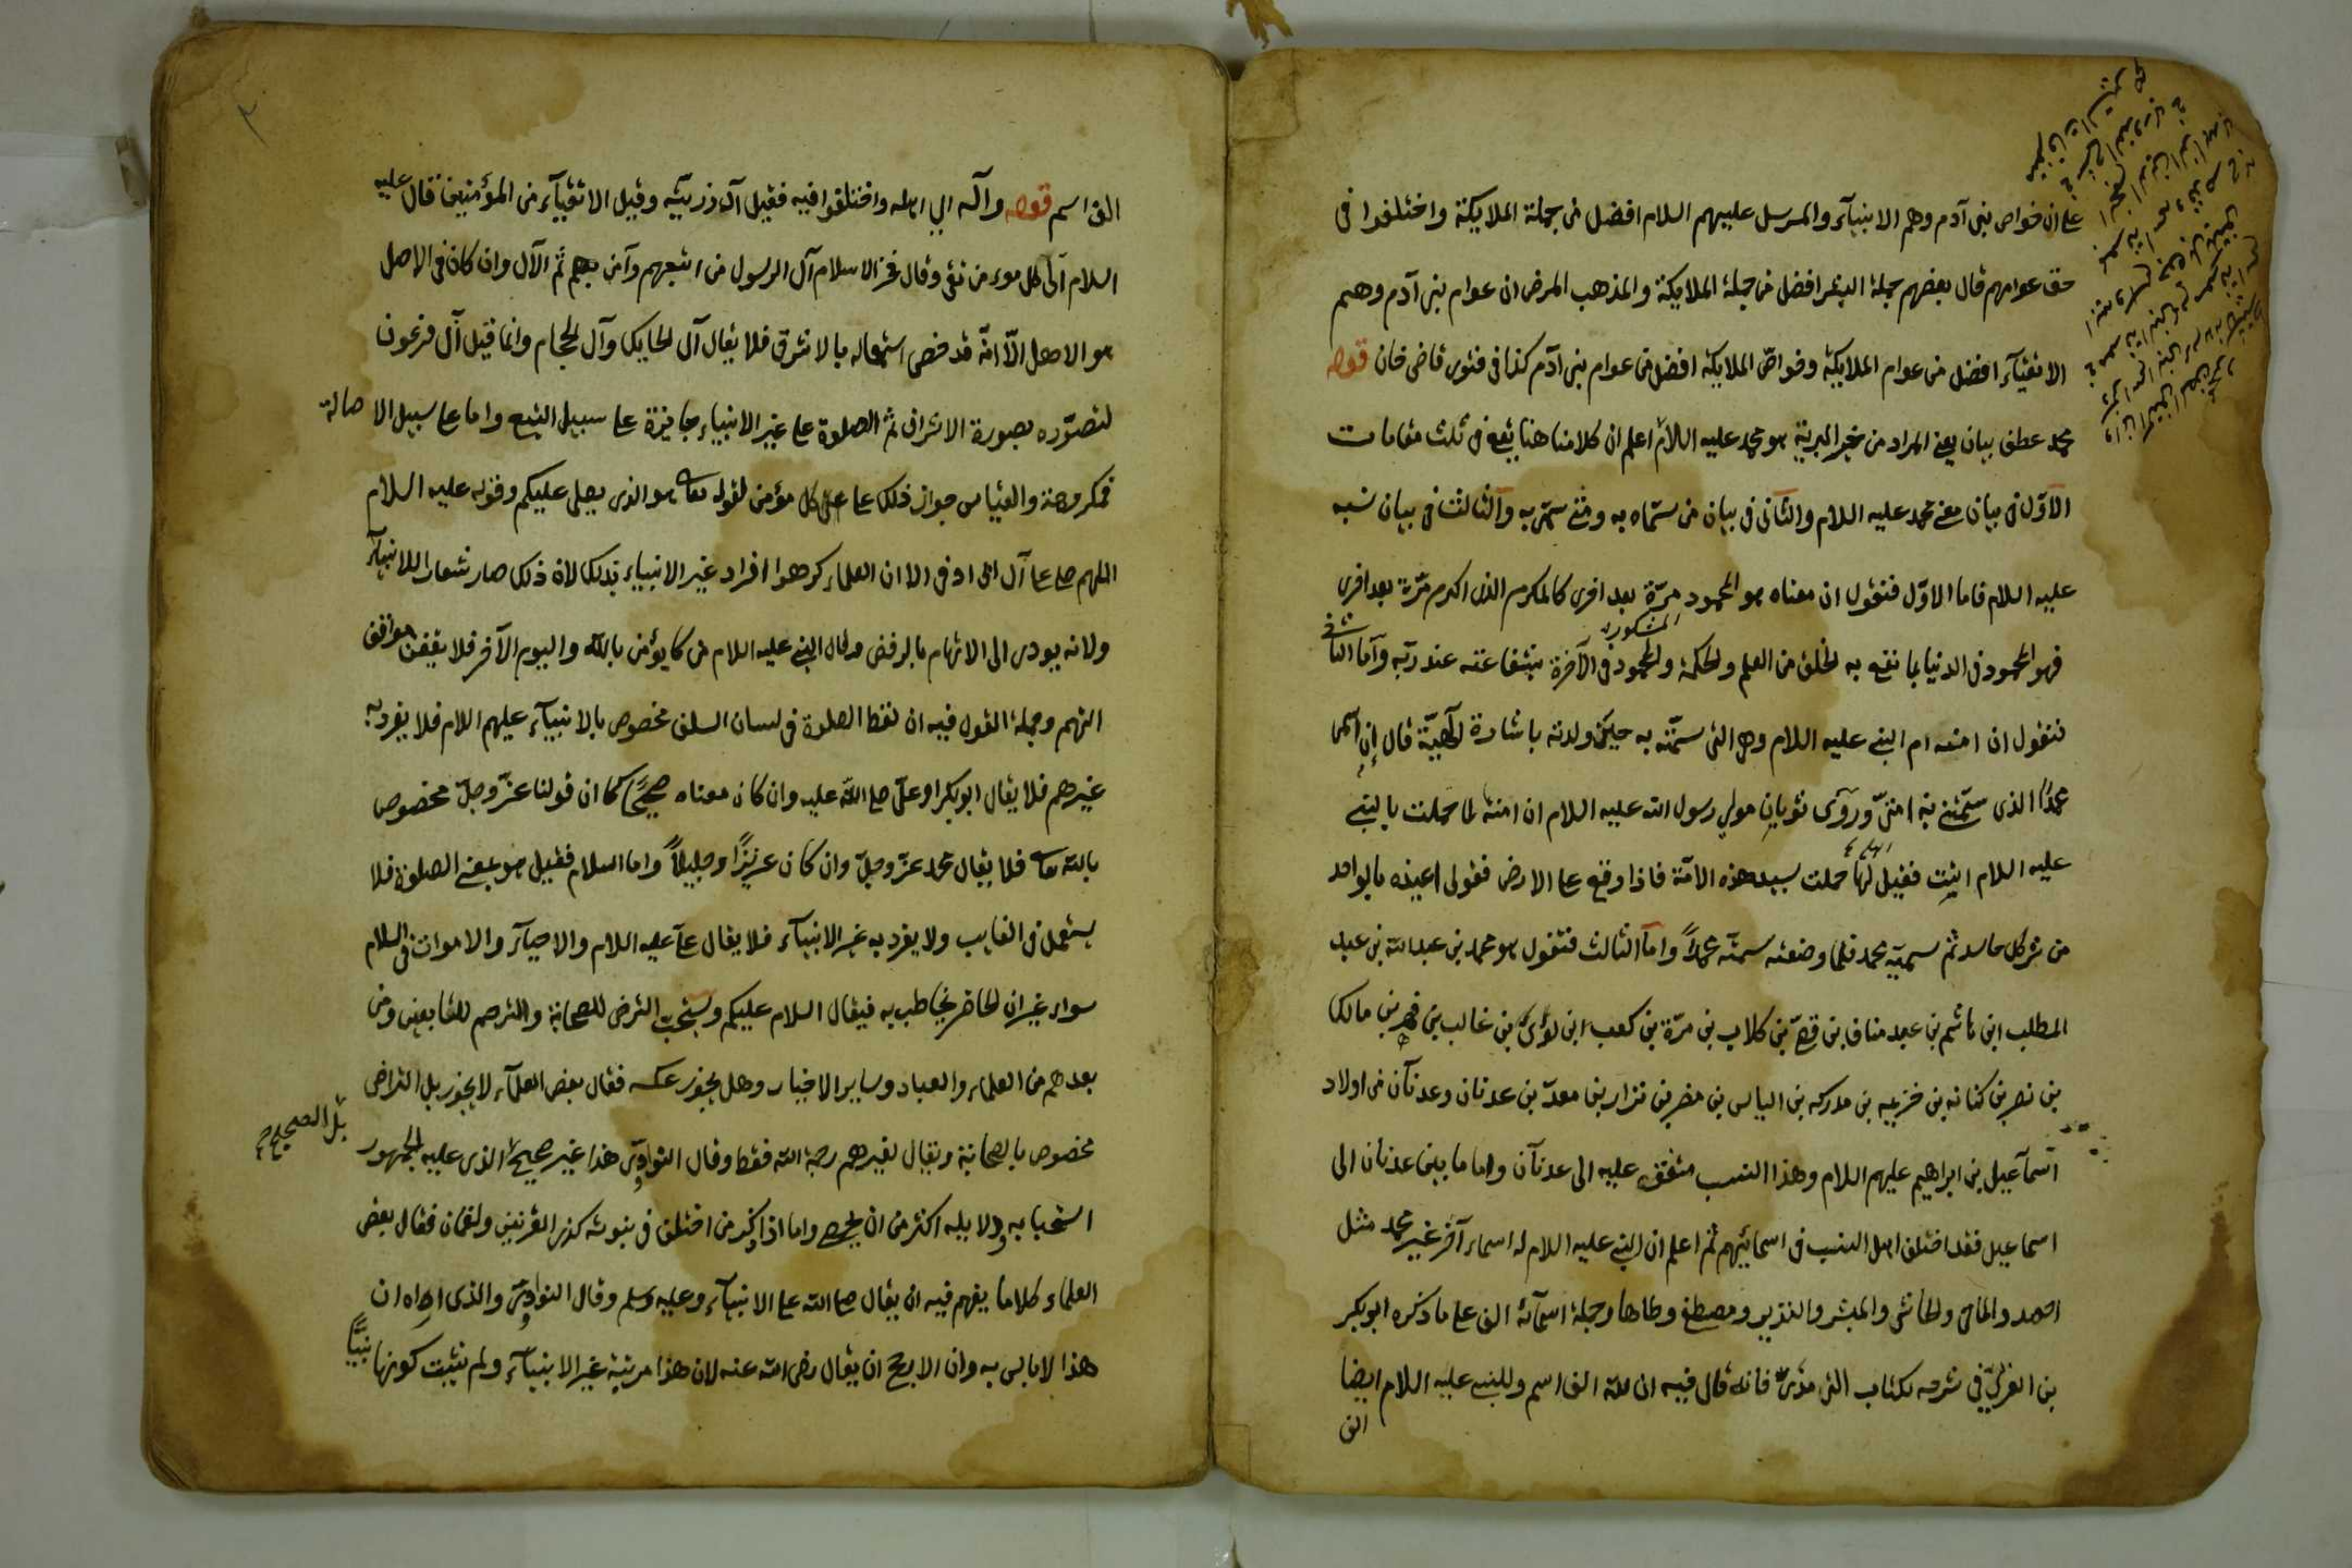 على ان خواص بنى آدم وهم الانبيآء والمرسل عليهم السلام افضل من جملة الملايكة واختلفوا فى
حق عوامهم قال بعضهم جملة البشر افضل من جملة الملايكة والمذهب المرضى ان عوام بنى آدم وهم
الاتقيآء افضل من عوام الملايكة وخواصّ الملايكة افضل من عوام بنى آدم كذا فى فتوى قاضى خان قوله
محمد عطف بيان يعنى المراد من خير البرية هو محمد عليه السلام اعلم ان كلامنا هنا يقع فى ثلث مقامات
الاوّل فى بيان معنى محمد عليه السلام والثانى فى بيان من سمّاه به ومتى سمّى به والثالث فى بيان نسبه
عليه السلام فاما الاوّل فنقول ان معناه هو المحمود مرّة بعد اخرى كالمكرم الذى اكرم مرّة بعد اخرى
فهو المحمود فى الدنيا بما نفع به الخلق من العلم والحكمة والمحمود فى الآخرة بشفاعته عند ربّه وآمّا الثانى
المشكور
فنقول ان امنه ام النبى عليه السلام وهى التى سمّته به حين ولدته باشارة آلهيّة قال إن اسمى
محمدًا الذى سمّتنى به امّى وروى ثوبان مولى رسول الله عليه السلام ان امنة لما حملت بالنبى
عليه السلام اتيت فقيل لها حملت سيد هذه الامّة فاذا وقع على الارض فقولى اعيذه بالواحد
من شر كل حاسد ثم سميّه محمد فلما وضعته سمته محمدًا واما الثالث فنقول هو محمد بن عبد الله بن عبد
المطلب ابن هاشم بن عبد مناف بن قصىّ بن كلاب بن مرّة بن كعب ابن لؤىّ بن غالب بن فهر بن مالك
بن نصر بن كنانه بن خزيمه بن مدركه بن الياس بن مضر بن نزار بن معدّ بن عدنان وعدنان من اولاد
اسماعيل بن ابراهيم عليهم السلام وهذا النسب متفق عليه الى عدنان واما ما بين عدنان الى
اسماعيل فقد اختلف اهل النسب فى اسمائيهم ثم اعلم ان النبى عليه السلام له اسماء آخر غير محمد مثل
احمد والماحى والحاشر والمبشر والنذير ومصطفى وطاها وجملة اسمآئه الف على ما ذكره ابو بكر
بن العربىّ فى شرحه لكتاب الترمذىّ فانه قال فيه ان لله الف اسم وللنبى عليه السلام ايضا
الف
الف اسم قوله وآله اى اهله واختلفوا فيه فقيل آله ذريّته وقيل الاتقيآء من المؤمنين قال عليه
السلام آلى كل موءمن تقى وقال فخر الاسلام آل الرسول من اتبعهم وآمن بهم ثم الآل وان كان فى الاصل
هو الاهل الاّ انّه قد خص استعماله بالاشرف فلا يقال آل الحايك وآل الحجام وانما قيل آل فرعون
لتصوّره بصورة الاشراف ثم الصلوة على غير الانبياء جايزة على سبيل التبع واما على سبيل الاصالة
فمكروهة والقياس جواز ذلك على كل مؤمن لقوله تعالى هو الذى يصلى عليكم وقوله عليه السلام
اللهم صل على آل ابى اوفى الا ان العلماء كرهوا افراد غير الانبياء بذلك لان ذلك صار شعار اللانبيآء
ولانه يودى الى الاتهام بالرفض وقال النبى عليه السلام من كا يؤمن بالله واليوم الآخر فلا يقفن مواقف
التهم وجملة القول فيه ان لفظ الصلوة فى لسان السلف مخصوص بالانبيآء عليهم السلام فلا يفرد به
غيرهم فلا يقال ابو بكر او علىّ صلى الله عليه وان كان معناه صحيحًا كما ان قولنا عزّ وجلّ مخصوص
بالله تعالى فلا يقال محمد عزّ وجلّ وان كان عزيزًا وجليلاً واما السلام فقيل هو بمعنى الصلوة فلا
يستعمل فى الغايب ولا يفرد به غير الانبيآء فلا يقال على عليه السلام والاحيآء والاموات فى السلام
سواء غير ان الحاضر يخاطب به فيقال السلام عليكم ويستحبّ الترضى للصحابة والترحم للتابعين ومن
بعدهم من العلماء والعباد وساير الاخيار وهل يجوز عكسه فقال بعض العلمآء لا يجوز بل التراضى
مخصوص بالصحابة ويقال لغيرهم رحمة الله فقط وقال النواوىّ هذا غير صحيح الذى عليه الجمهور
بل الصحيح صح
استحبابه ودلايله اكثر من ان يحصى واما اذا ذكر من اختلف فى نبوته كذى القرنين ولقمان فقال بعض
العلماء كلاما يفهم فيه ان يقال صلى الله على الانبيآء وعليه وسلم وقال النواوىّ والذى اراه ان
هذا لا باس به وان الارجح ان يقال رضى الله عنه لان هذا مرتبة غير الانبيآء ولم تثبت كونها نبيًّا